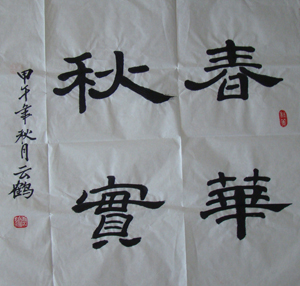 春華
秋實
甲午年秋月云鹤